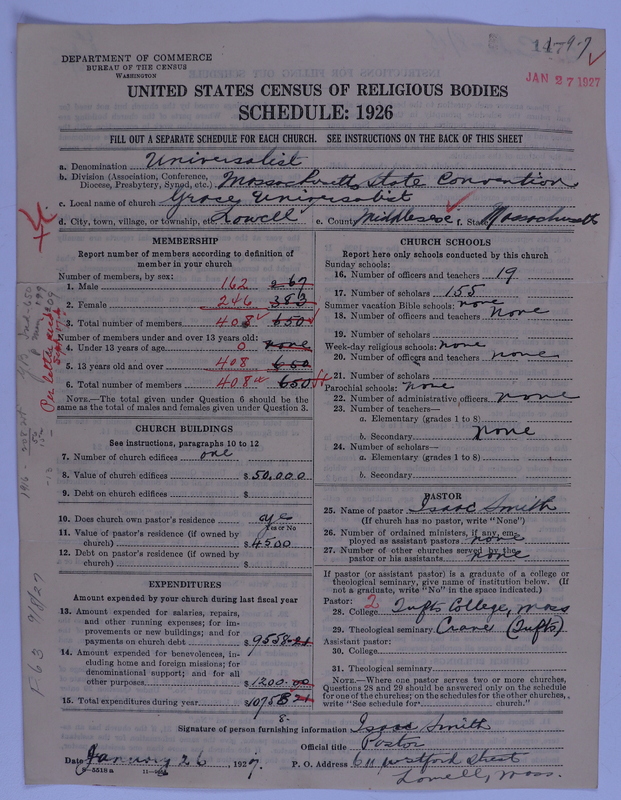 11479-7
JAN 27 1927
DEPARTMENT OF COMMERCE
BUREAU OF THE CENSUS
WASHINGTON
UNITED STATES CENSUS OF RELIGIOUS BODIES
SCHEDULE: 1926
FILL OUT A SEPARATE SCHEDULE FOR EACH CHURCH. SEE INSTRUCTIONS ON THE BACK OF THIS SHEET
a. Denomination Universalist
b. Division (Association, Conference, Diocese, Presbytery, Synod, etc.) Massachusetts State Convention
c. Local name of church Grace Universalist
d. City, town, village, or township, etc. Lowell e. County Middlesex f. State Massachusetts
MEMBERSHIP
Report number of members according to definition of
member in your church
Number of members, by sex:
1. Male 162 267
2. Female 246 383
3. Total number of members 408 650
Number of members under and over 13 years old:
4. Under 13 years of age 0 none
5. 13 years old and over 408 650
6. Total number of members 408 650
NOTE.—The total given under Question 6 should be the
same as the total of males and females given under Question 3.
CHURCH BUILDINGS
See instructions, paragraphs 10 to 12
7. Number of church edifices one
8. Value of church edifices $50,000
9. Debt on church edifices $
10. Does church own pastor's residence yes
Yes or No
11. Value of pastor's residence (if owned by
church) $4500
12. Debt on pastor's residence (if owned by
church) $
EXPENDITURES
Amount expended by your church during last fiscal year
13. Amount expended for salaries, repairs,
and other running expenses; for im-
provements or new buildings; and for
payments on church debt $9558.21
14. Amount expended for benevolences, in-
cluding home and foreign missions; for
denominational support; and for all
other purposes $1200.00
15. Total expenditures during year $10758 21
8-
CHURCH SCHOOLS
Report here only schools conducted by this church
Sunday schools:
16. Number of officers and teachers 19
17. Number of scholars 155
Summer vacation Bible schools: none
18. Number of officers and teachers none
19. Number of scholars
Week-day religious schools: none
20. Number of officers and teachers none
21. Number of scholars
Parochial schools: none
22. Number of administrative officers none
23. Number of teachers—
a. Elementary (grades 1 to 8)
b. Secondary none
24. Number of scholars—
a. Elementary (grades 1 to 8)
b. Secondary
PASTOR
25. Name of pastor Isaac Smith
(If church has no pastor, write "None")
26. Number of ordained ministers, if any, em-
ployed as assistant pastors none
27. Number of other churches served by the
pastor or his assistants none
If pastor (or assistant pastor) is a graduate of a college or
theological seminary, give name of institution below. (If
not a graduate, write "No" in the space indicated.)
Pastor: 2
28. College Tufts College, Mass
29. Theological seminary Crane (Tufts)
Assistant pastor:
30. College
31. Theological seminary
NOTE.—Where one pastor serves two or more churches,
Questions 28 and 29 should be answered only on the schedule
for one of the churches; on the schedules for the other churches,
write "See schedule for church."
Signature of person furnishing information Isaac Smith
Official title Pastor
Date January 26, 1927. P. O. Address 611 Westford Street
Lowell, Mass.
8—5518 a
F 63 9/8/27